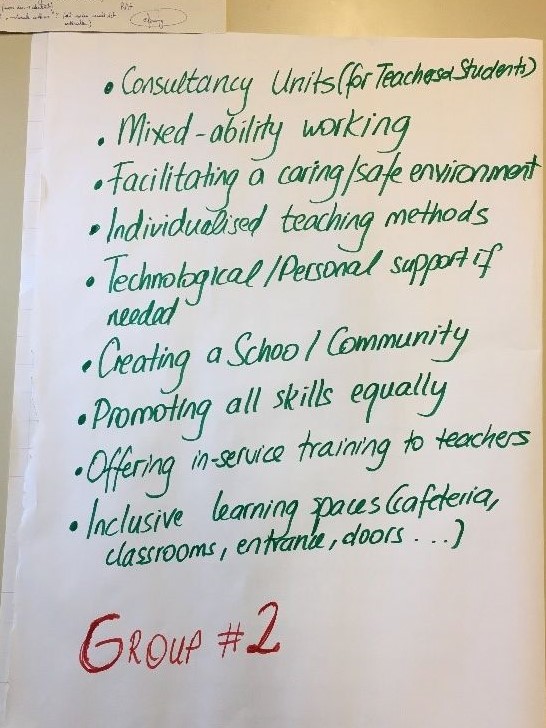 • Consultancy Units (for Teachers & Students)
• Mixed-ability working
• Facilitating a caring/safe environment
• Individualised teaching methods
• Technological/Personal support if
needed
• Creating a School Community
• Promoting all skills equally
• Offering in-service training to teachers
• Inclusive learning spaces (cafeteria,
classrooms, entrance, doors ...)
GROUP #2